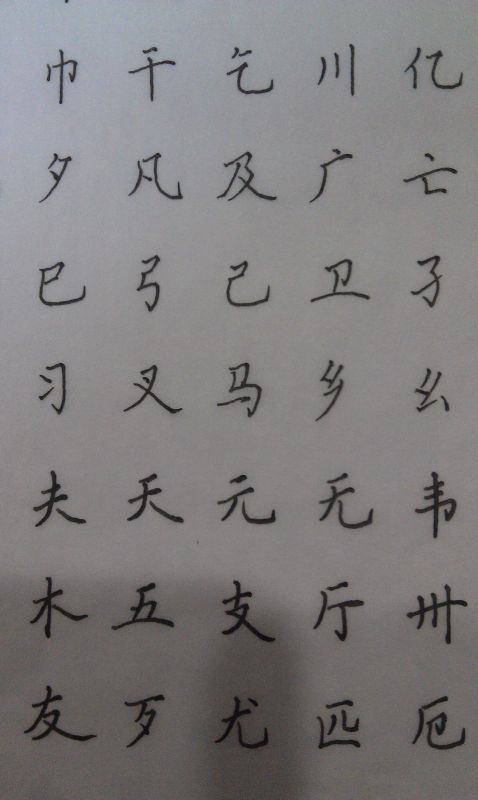 巾 干 乞 川 亿
夕 凡 及 广 亡
巳 弓 己 卫 孑
习 叉 马 乡 幺
夫 天 元 无 韦
木 五 支 厅 卅
友 歹 尤 匹 厄